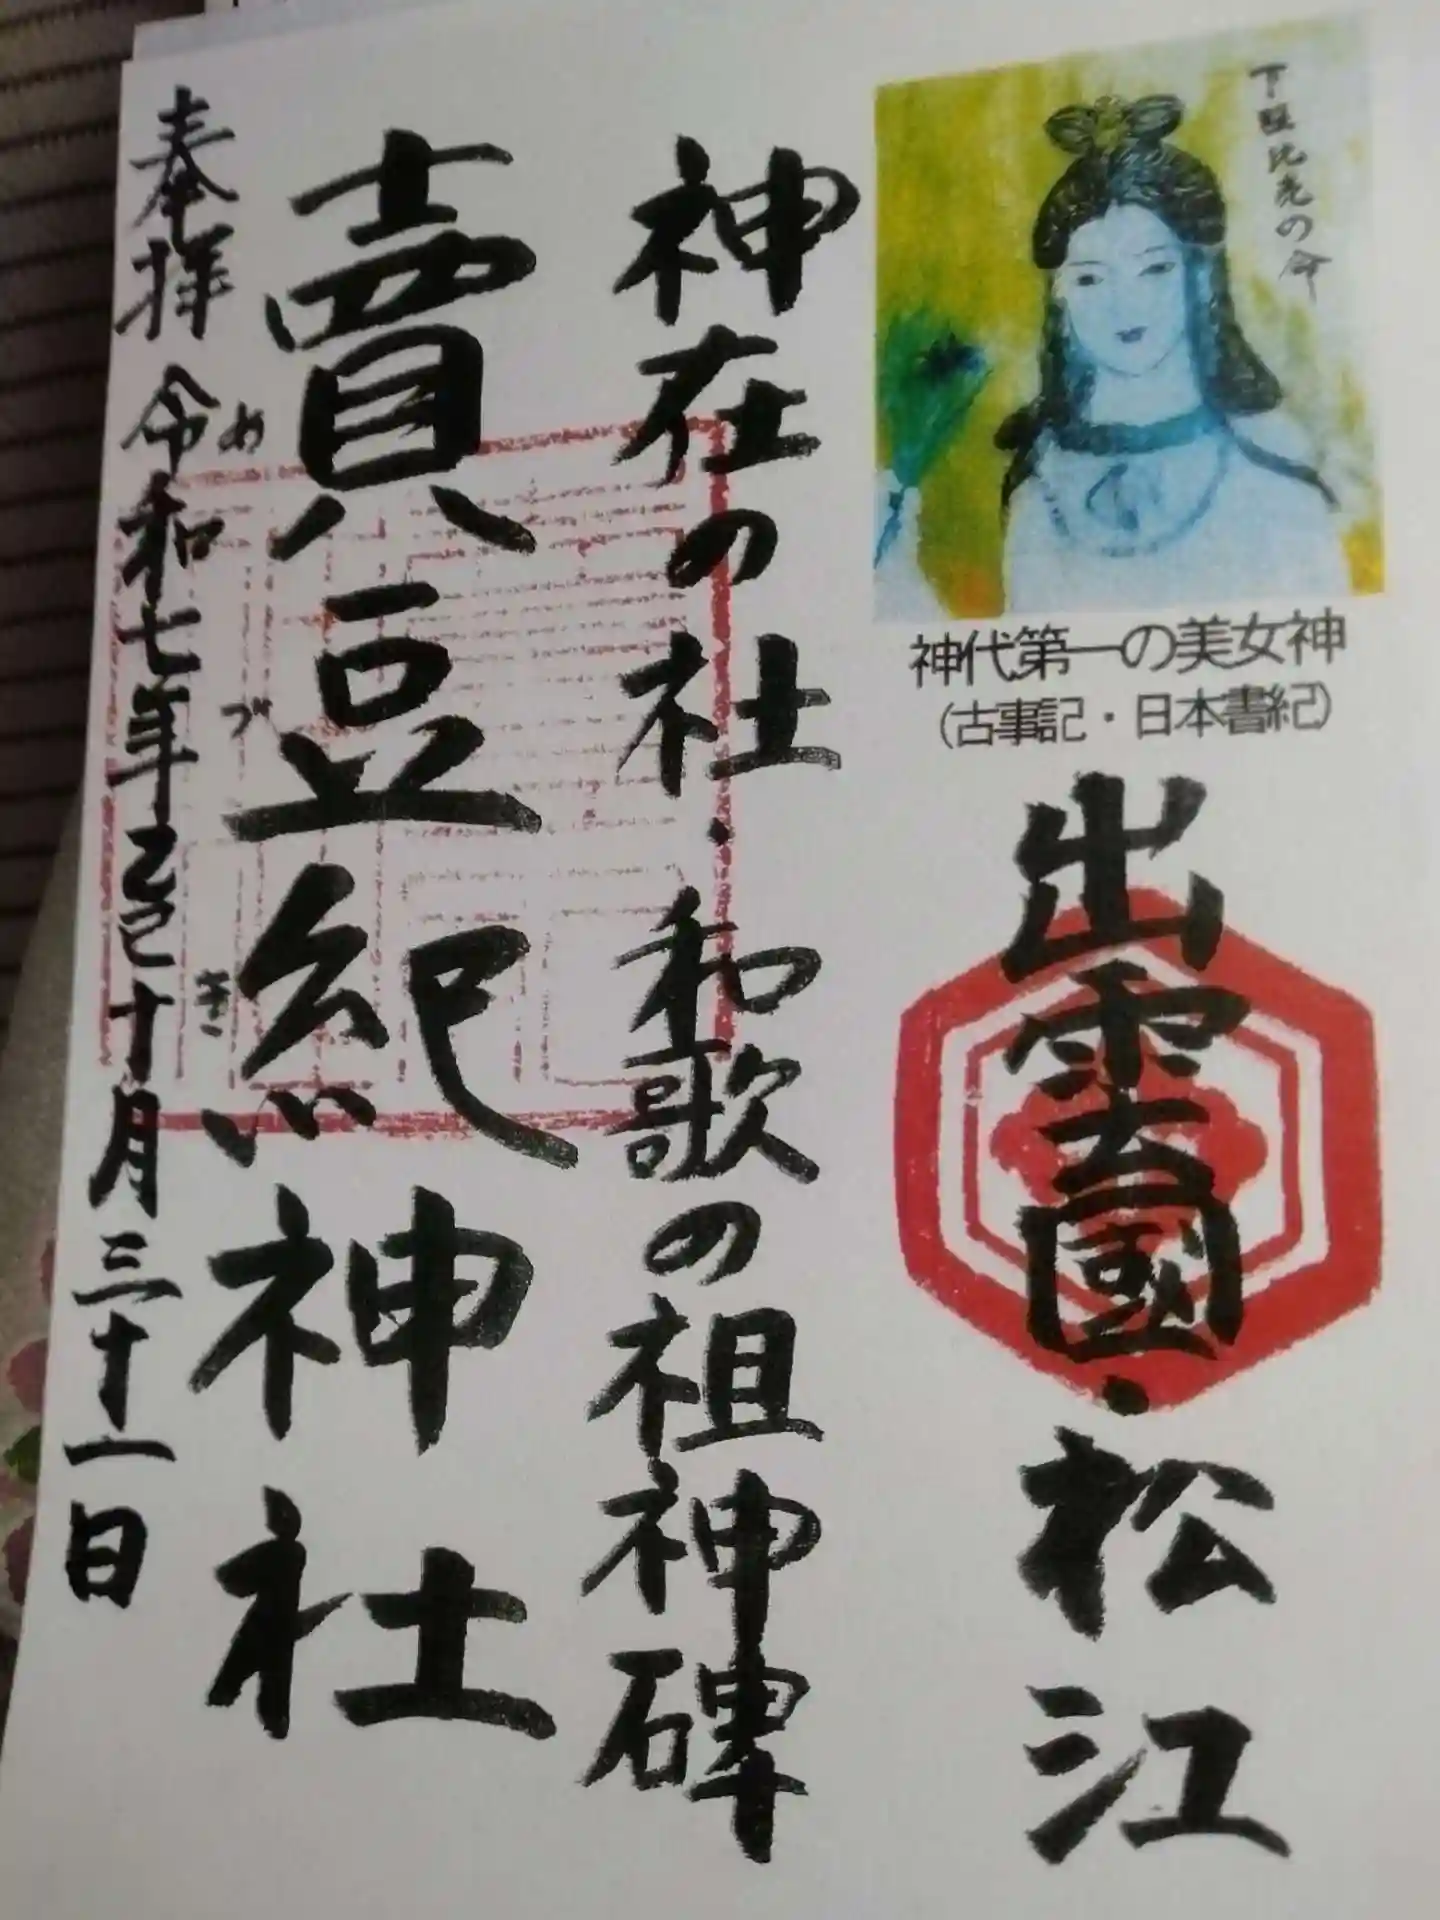 下照比売の命
神代第一の美女神
(古事記・日本書紀)
出雲國・松江
神在の社・和歌の祖神碑
賣豆紀神社
め
づ
き
奉拝 令和七年乙巳十月三十一日